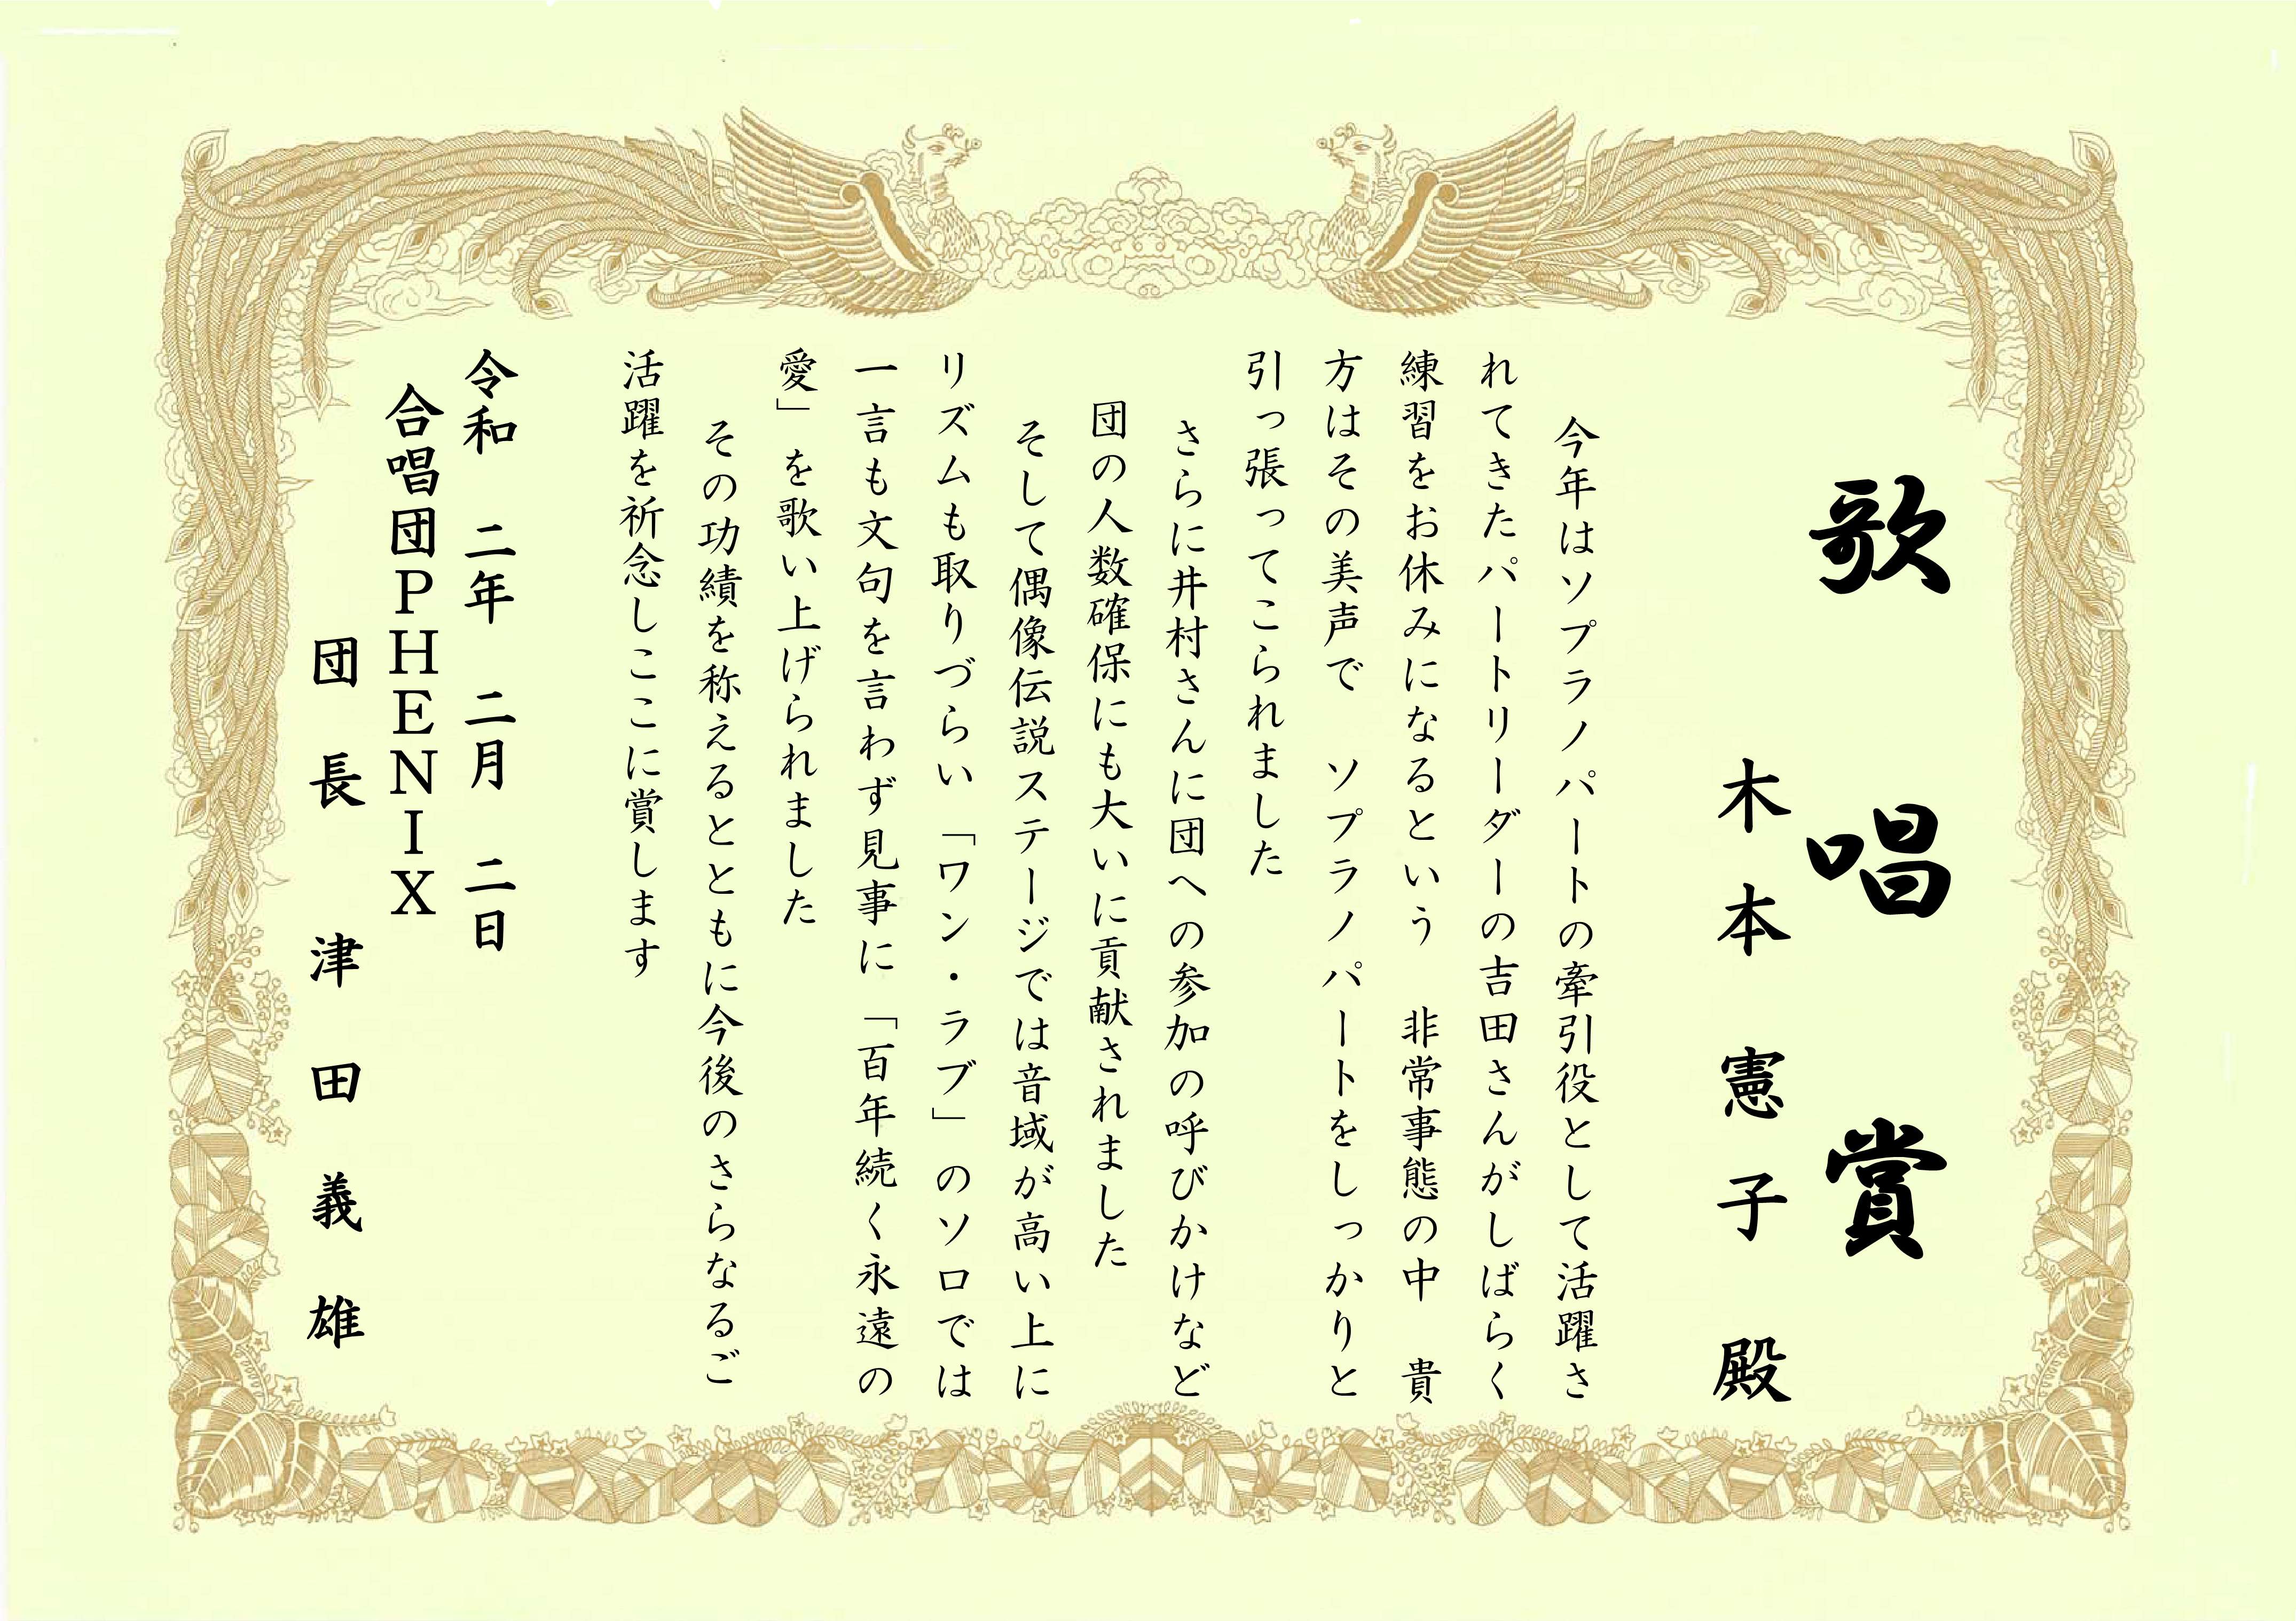 歌唱賞
木本憲子殿
今年はソプラノパートの牽引役として活躍さ
れてきたパートリーダーの吉田さんがしばらく
練習をお休みになるという　非常事態の中　貴
方はその美声で　ソプラノパートをしっかりと
引っ張ってこられました
さらに井村さんに団への参加の呼びかけなど
団の人数確保にも大いに貢献されました
そして偶像伝説ステージでは音域が高い上に
リズムも取りづらい「ワン・ラブ」のソロでは
一言も文句を言わず見事に「百年続く永遠の
愛」を歌い上げられました
その功績を称えるとともに今後のさらなるご
活躍を祈念しここに賞します
令和　二年　二月　二日
合唱団PHENIX
団長　津田義雄